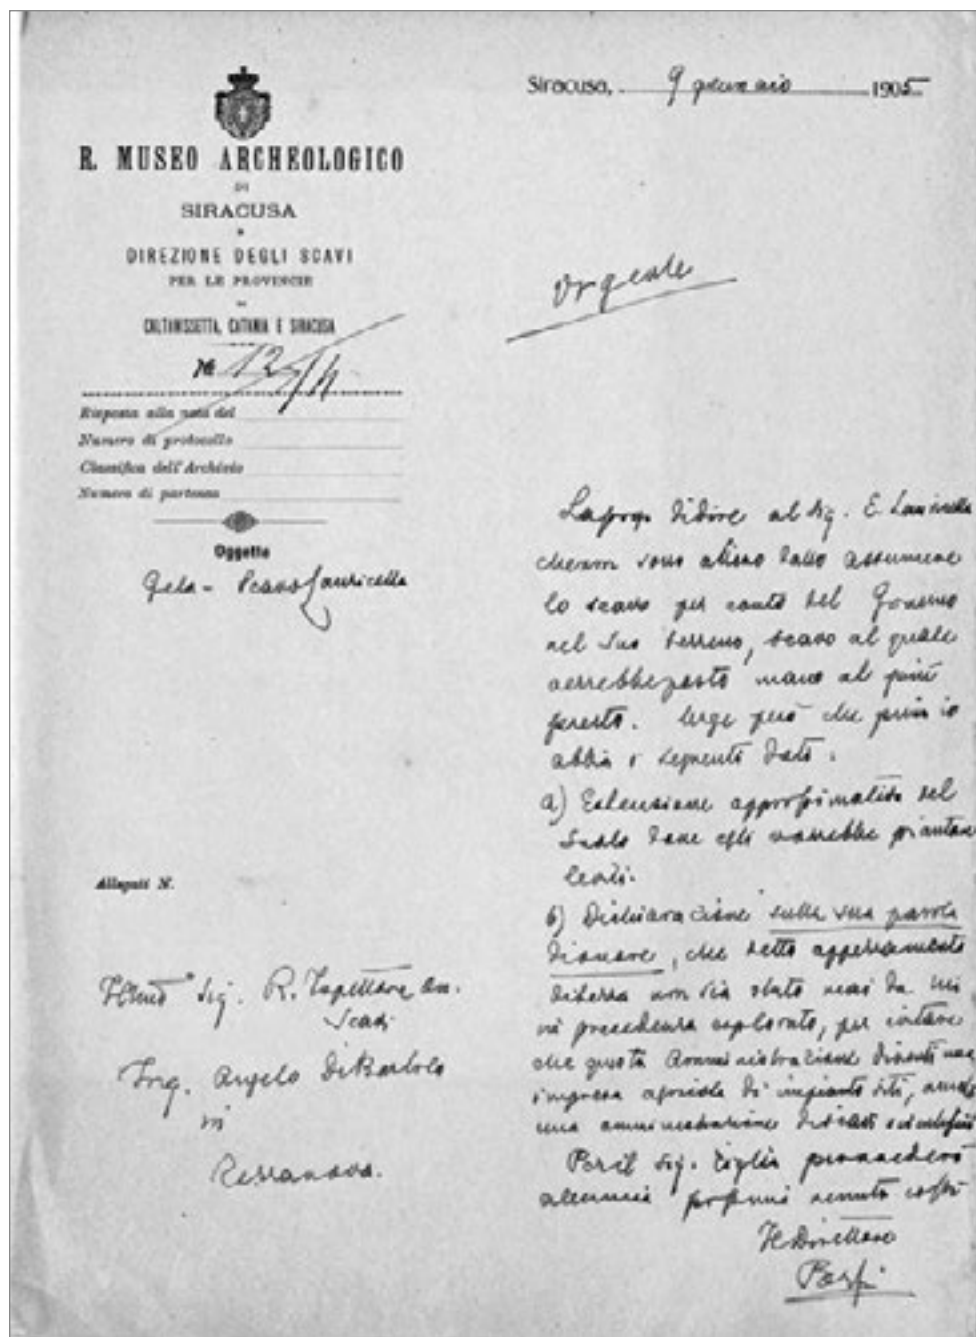 Siracusa, 9 gennaio 1905
R. MUSEO ARCHEOLOGICO
DI
SIRACUSA
DIREZIONE DEGLI SCAVI
PER LE PROVINCIE
DI
CALTANISSETTA, CATANIA E SIRACUSA
Urgente
№ 12
Risposta alla nota del
Numero di protocollo
Classifica dell'Archivio
Numero di partenza
Oggetto
Gela - Scavo Lauricella
Allegati N.
Ill.mo Sig. R. Ispettore On.
Scavi
Ing. Angelo Di Bartolo
in
Terranova.
La prego di dire al Sig. E. Lauricella
che non sono alieno dallo assumere
lo scavo per conto del Governo
nel suo terreno, scavo al quale
verrebbe posto mano al più
presto. Urge però che prima io
abbia i seguenti dati.
a) Estensione approssimativa del
suolo dove egli vorrebbe piantare
le viti.
b) Dichiarazione sulla sua parola
di onore, che detto appezzamento
di terra non sia stato mai da lui
in precedenza esplorato, per evitare
che questa Amministrazione diventi una
impresa agricola di impianto viti, anzichè
una amministrazione di scavi scientifici
Per il Sig. provvederò
venuta costì
Il Direttore
Orsi